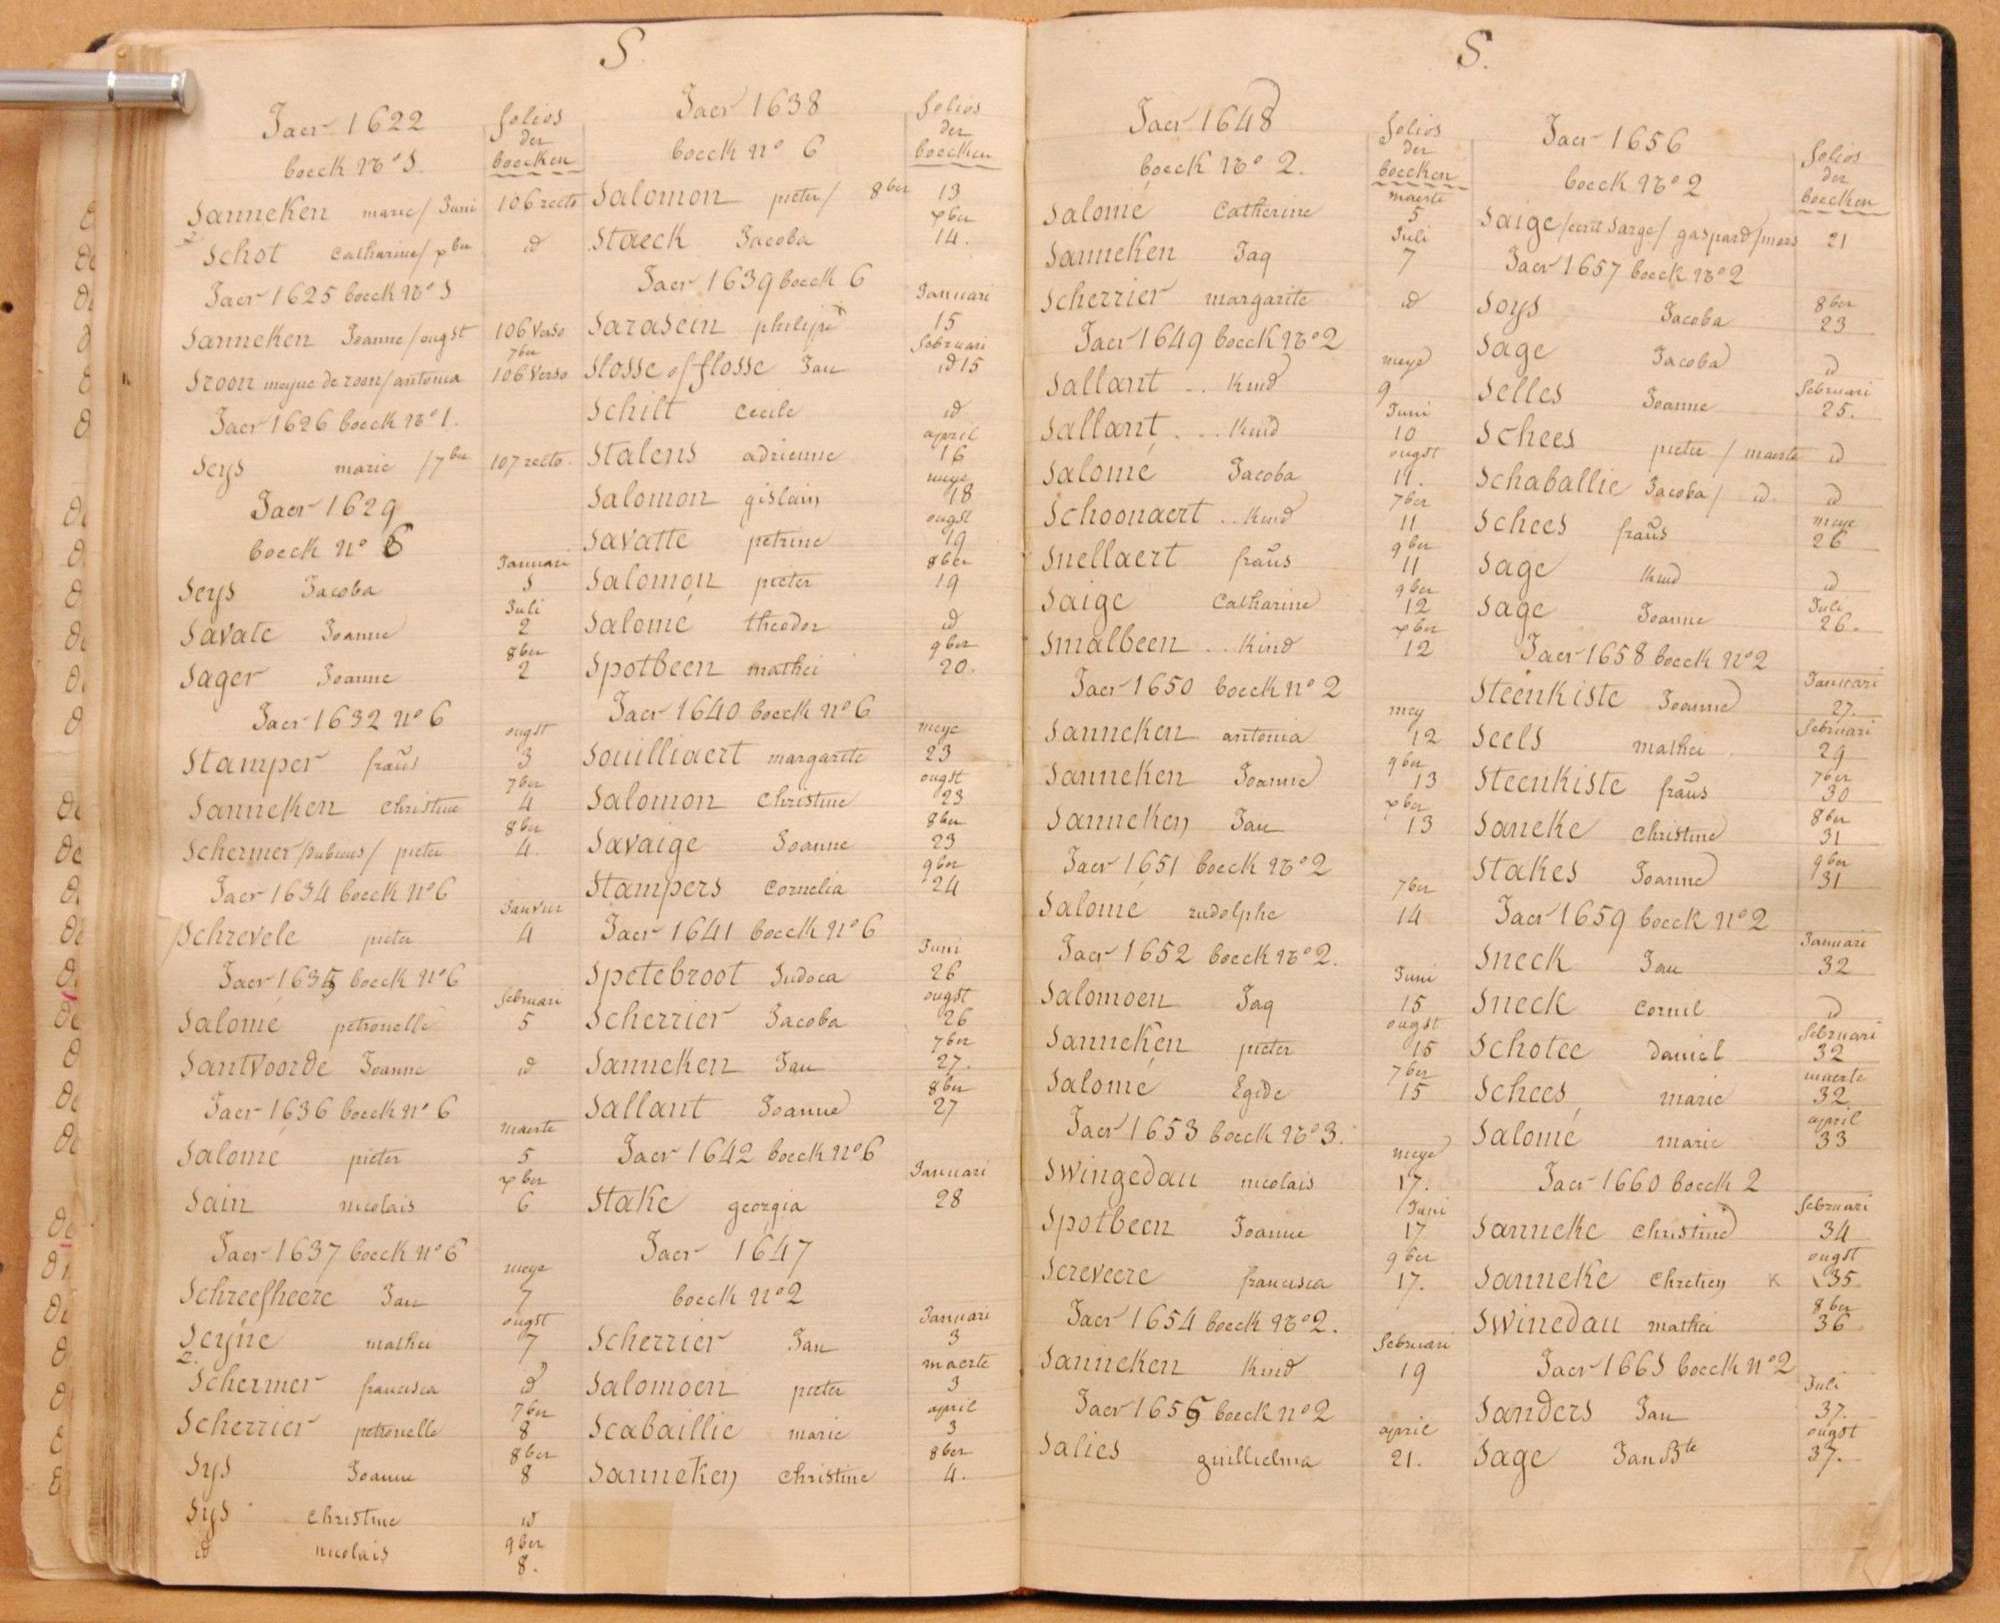 S
Jaer 1622
folios der boecken
boeck No 1.
Sanneken marie / Juni 106 recto
2 Schot Catharine / xber id
Jaer 1625 boeck No 1
Sanneken Joanne / ougst 106 Verso
7ber
Sroon meyne de roon / antonia 106 Verso
Jaer 1626 boeck No 1.
Seys marie / 7ber 107 recto
Jaer 1629
boeck No 6
Januari
Seys Jacoba 1
Juli
Savate Joanne 2
8ber
Sager Joanne 2
Jaer 1632 No 6
ougst
Stamper fraus 3
7ber
Sanneken Christine 4
8ber
Schermer / / pieter 4.
Jaer 1634 boeck No 6
Schrevele pieter 4
Jaer 1635 boeck No 6
februari
Salomé petronelle 5
Santvoorde Joanne id
Jaer 1636 boeck No 6
maerte
Salomé pieter 5
xber
Sain nicolais 6
Jaer 1637 boeck No 6
meye
Schreefheere Jan 7
ougst
Seyne mathei 7
2. Schermer francisca id
7ber
Scherrier petronelle 8
8ber
Sys Joanne 8
Sys Christine id
9ber
id nicolais 8.
Jaer 1638
folios der boecken
boeck No 6
Salomon pieter / 8ber 13
xber
Staeck Jacoba 14.
Jaer 1639 boeck 6
Januari
Sarasein philipe 15
februari
Slosse of flosse Jan id 15
Schilt Cecile id
april
Stalens adrienne 16
meye
Salomon gislain 18
ougst
Savatte petrine 19
8ber
Salomon pieter 19
Salomé theodor id
9ber
Spotbeen mathei 20.
Jaer 1640 boeck No 6
meye
Souilliaert margarite 23
ougst
Salomon Christine 23
8ber
Savaige Joanne 23
9ber
Stampers Cornelia 24
Jaer 1641 boeck No 6
Juni
Spetebroot Judoca 26
ougst
Scherrier Jacoba 26
7ber
Sanneken Jan 27.
8ber
Sallant Joanne 27
Jaer 1642 boeck No 6
Januari
Stake georgia 28
Jaer 1647
boeck No 2
Januari
Scherrier Jan 3
maerte
Salomoen pieter 3
april
Scabaillie marie 3
8ber
Sanneken Christine 4.
S.
Jaer 1648
folios der boecken
boeck No 2.
maerte
Salomé Catherine 5
Juli
Sanneken Jaq 7
Scherrier margarite id
Jaer 1649 boeck No 2
meye
Sallant .. Kind 9
Juni
Sallant . .. Kind 10
ougst
Salomé Jacoba 11.
7ber
Schoonaert .. Kind 11
9ber
Snellaert fraus 11
9ber
Saige Catharine 12
xber
Smalbeen .. Kind 12
Jaer 1650 boeck No 2
mey
Sanneken antonia 12
9ber
Sanneken Joanne 13
xber
Sanneken Jan 13
Jaer 1651 boeck No 2
7ber
Salomé rudolphe 14
Jaer 1652 boeck No 2.
Juni
Salomoen Jaq 15
ougst
Sanneken pieter 15
7ber
Salomé Egide 15
Jaer 1653 boeck No 3.
meye
Swingedau nicolais 17.
Juni
Spotbeen Joanne 17
9ber
Screveere francisca 17.
Jaer 1654 boeck No 2.
februari
Sanneken Kind 19
Jaer 1655 boeck No 2
april
Salies guillielma 21.
Jaer 1656
folios der boecken
boeck No 2
Saige / ecrit Sarge / gaspard / mars 21
Jaer 1657 boeck No 2
8ber
Soys Jacoba 23
Sage Jacoba id
februari
Selles Joanne 25.
Schees pieter / maerte id
Schaballie Jacoba / id. id
meye
Schees fraus 26
Sage Kind id
Juli
Sage Joanne 26.
Jaer 1658 boeck No 2
Januari
Steenkiste Joanne 27.
februari
Seels mathei 29
7ber
Steenkiste fraus 30
8ber
Saneke Christine 31
9ber
Stakes Joanne 31
Jaer 1659 boeck No 2
Januari
Sneck Jan 32
Sneck Cornil id
februari
Schotee Daniel 32
maerte
Schees marie 32
april
Salomé marie 33
Jaer 1660 boeck 2
februari
Sanneke Christine 34
ougst
Sanneke Chretien x 35
8ber
Swinedau mathei 36
Jaer 1661 boeck No 2
Juli
Sanders Jan 37.
ougst
Sage Jan Bte 37.